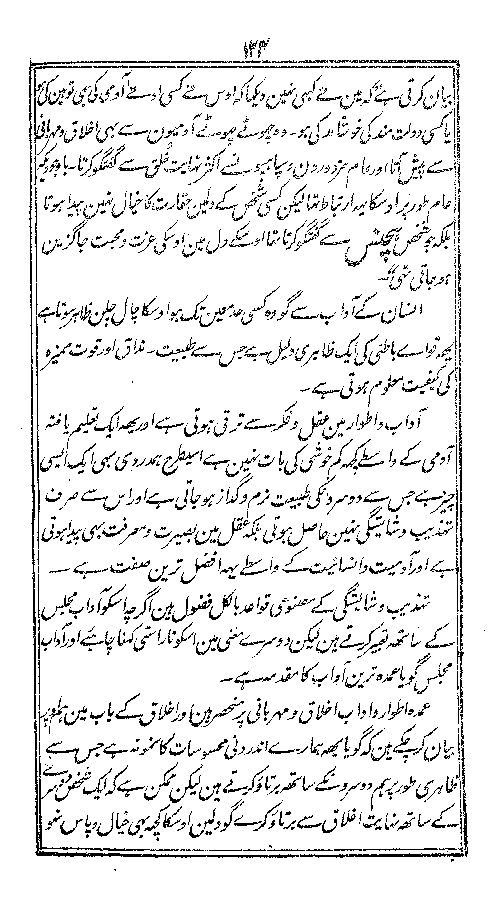 ۱۳۴
بیان کرتی ہے کہ مین نے کبھی نہین دیکھا کہ اوس نے کسی ادنے آدمی کی بھی توہین کی ہو
یا کسی دولت مند کی خوشامد کی ہو۔ وہ چھوٹے چھوٹے آدمیون سے بھی اخلاق و مہربانی
سے پیش آتا اور عام مزدورون و سپاہیونسے اکثر نہایت خلق سے گفتگو کرتا۔ باوجودیکہ
عام طور پر اوسکا یہ ارتباط تھا لیکن کسی شخص کے دلمین حقارت کا خیال نہین پیدا ہوتا
بلکہ جو شخص سے گفتگو کرتا تھا اوسکے دل مین اوسکی عزت و محبت جاگزین
ہو جاتی تھی"۔
انسان کے آداب سے گو وہ کسی حد معین تک ہو اوسکا چال چلن ظاہر ہوتا ہے
یہہ قواے باطنی کی ایک ظاہری دلیل ہے جس سے طبیعت۔ مذاق اور قوت ممیزہ
کی کیفیت معلوم ہوتی ہے۔
آداب و اطوار مین عقل و فکر سے ترقی ہوتی ہے اور یہہ ایک تعلیم یافتہ
آدمی کے واسطے کچھہ کم خوشی کی بات نہین ہے اسیطرح ہمدردی بھی ایک ایسی
چیز ہے جس سے دوسرونکی طبیعت نرم و گداز ہو جاتی ہے اور اس سے صرف
تہذیب و شایستگی نہین حاصل ہوتی بلکہ عقل مین بصیرت و معرفت بھی پیدا ہوتی
ہے اور آدمیت و انسانیت کے واسطے یہہ افضل ترین صفت ہے۔
تہذیب و شایستگی کے مصنوعی قواعد بالکل فضول ہین اگرچہ اسکو آداب مجلس
کے ساتھہ تعبیر کرتے ہین لیکن دوسرے معنی مین اسکو ناراستی کہنا چاہئے اور آداب
مجلس گویا عمدہ ترین آداب کا مقدمہ ہے۔
عمدہ اطوار و آداب اخلاق و مہربانی پر منحصر ہین اور اخلاق کے باب مین ہم
بیان کر چکے ہین کہ گویا یہہ ہمارے اندرونی محسوسات کا نمونہ ہے جس سے
ظاہری طور پر ہم دوسرونکے ساتھہ برتاؤ کرتے ہین لیکن ممکن ہے کہ ایک شخص دوسرے
کے ساتھہ نہایت اخلاق سے برتاؤ کرے گو دلمین اوسکا کچہہ بھی خیال و پاس نہو